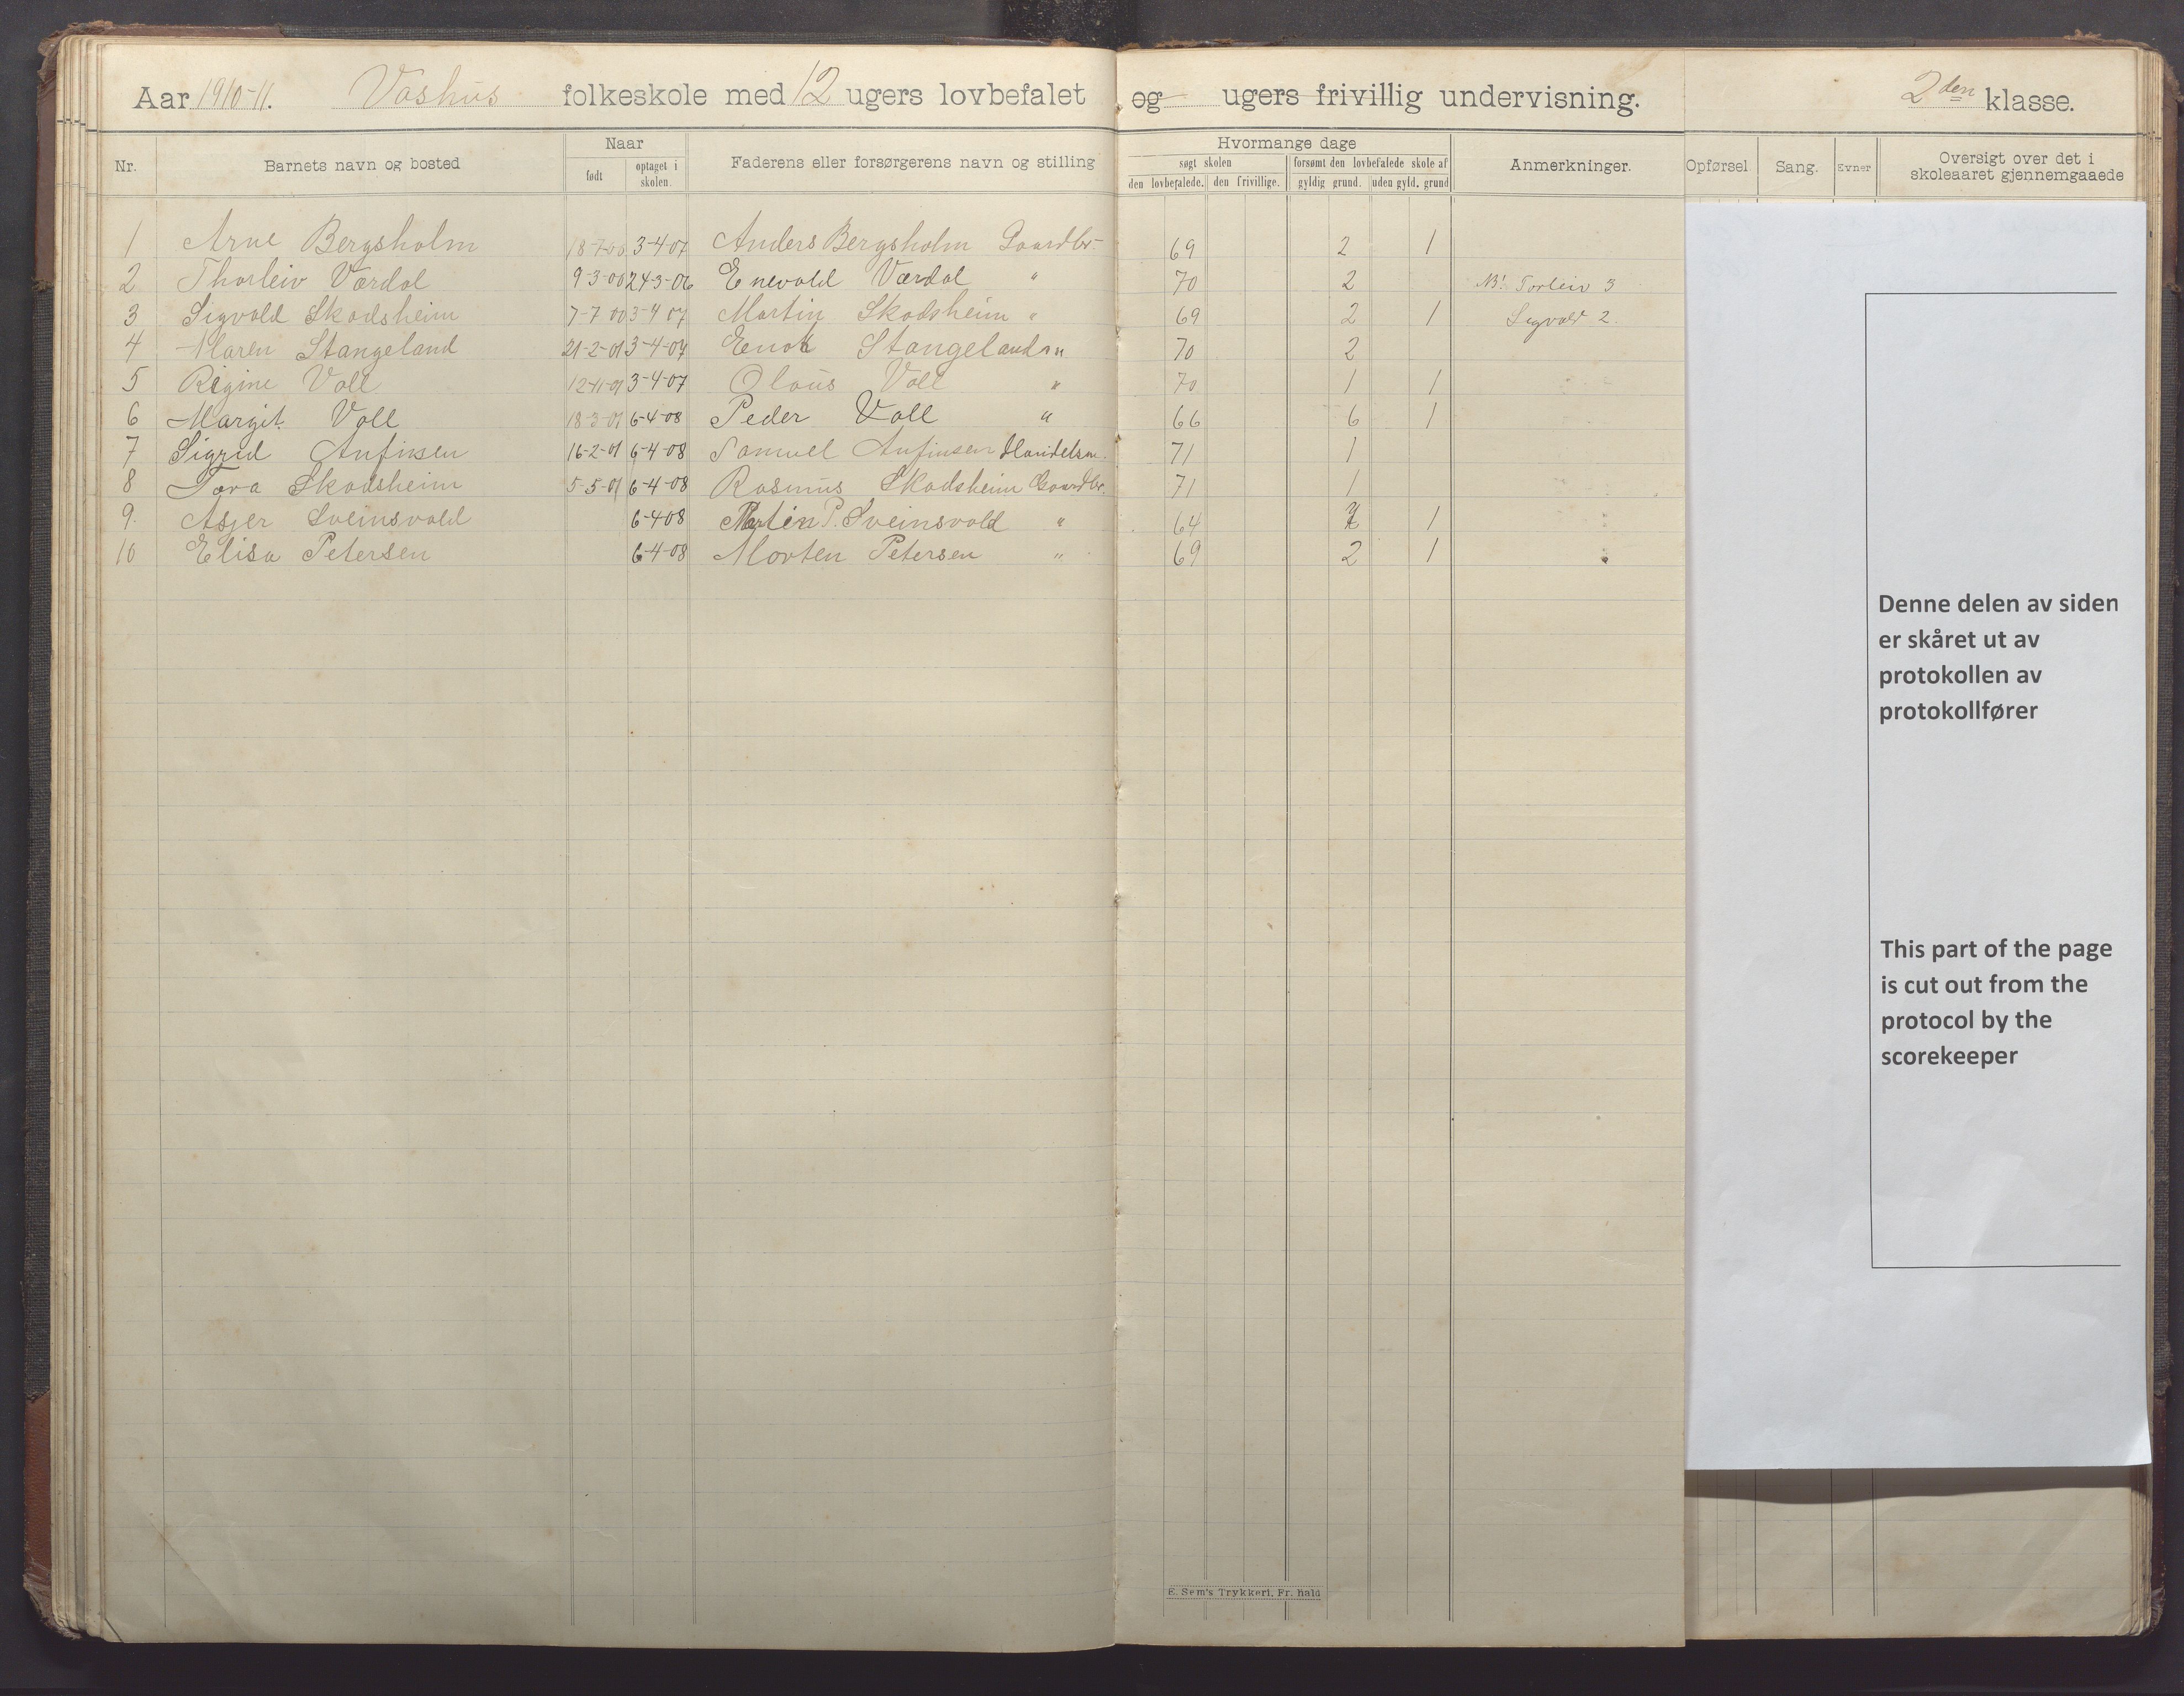 Aar 1910-11. Vashus folkeskole med 12 ugers lovbefalet og ugers frivillig undervisning. 2den klasse.
Nr. Barnets navn og bosted Naar født optaget i skolen. Faderens eller forsørgerens navn og stilling Hvormange dage søgt skolen den lovbefalede. den frivillige. forsømt den lovbefalede skole af gyldig grund. uden gyld. grund Anmerkninger. Opførsel Sang. Evner Oversigt over det i skoleaaret gjennemgaaede
1 Arne Bergsholm 18-7-00 3-4-07 Anders Bergsholm Gaardbr. 69 2 1
2 Thorleiv Værdal 9-3-00 24-3-06 Enevald Værdal " 70 2 NB! Torleiv 3
3 Sigvald Skadsheim 7-7 00 3-4 07 Martin Skadsheim " 69 2 1 Sigvald 2.
4 Maren Stangeland 21-2-01 3-4-07 Enok Stangeland " 70 2
5 Regine Voll 12-11-01 3-4-07 Olaus Voll " 70 1 1
6 Margit Voll 18-3-01 6-4-08 Peder Voll " 66 6 1
7 Sigrid Anfinsen 16-2-01 6-4-08 Samuel Anfinsen Handelsm. 71 1
8 Tora Skadsheim 5-5-01 6-4-08 Rasmus Skadsheim Gaardbr. 71 1
9. Asjer Sveinsvold 6-4-08 P. Sveinsvold " 64 7 1
10 Elisa Petersen 6-4-08 Morten Petersen " 69 2 1
Denne delen av siden
er skåret ut av
protokollen av
protokollfører
This part of the page
is cut out from the
protocol by the
scorekeeper
E. Sem's Trykkeri, Fr. hald